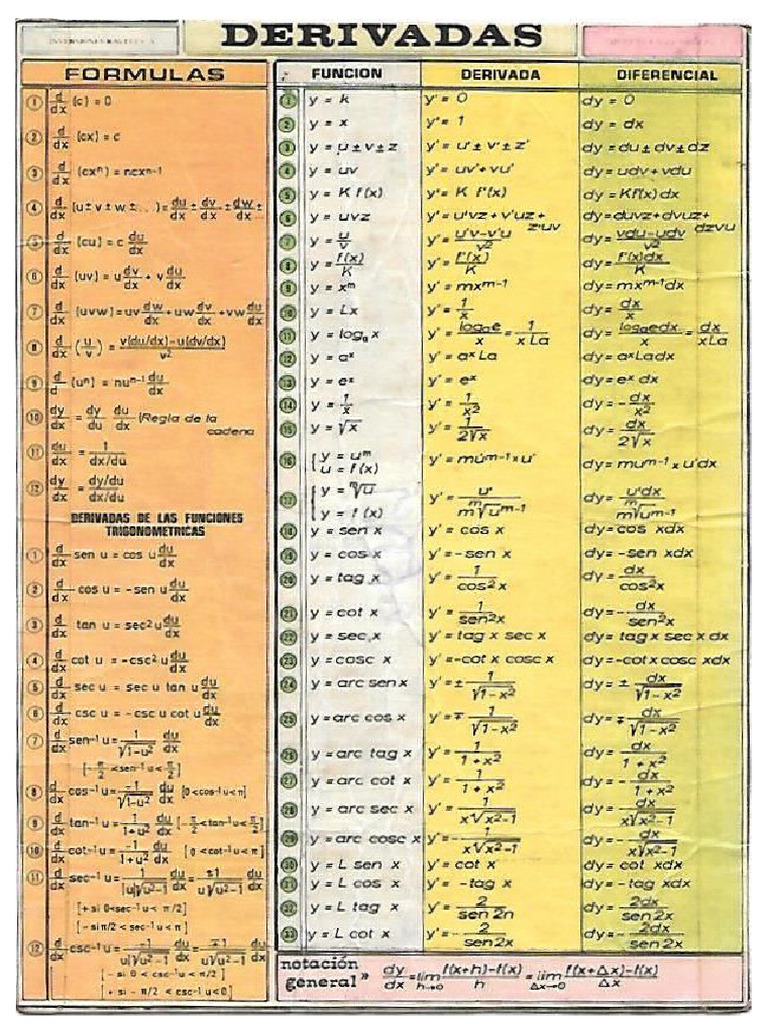 DERIVADAS
FORMULAS
① d/dx (c) = 0
② d/dx (cx) = c
③ d/dx (cxⁿ) = ncxⁿ⁻¹
④ d/dx (u ± v ± w ± ...) = du/dx ± dv/dx ± dw/dx ±
⑤ d/dx (cu) = c du/dx
⑥ d/dx (uv) = u dv/dx + v du/dx
⑦ d/dx (uvw) = uv dw/dx + uw dv/dx + vw du/dx
⑧ d/dx (u/v) = v(du/dx)-u(dv/dx)/v²
⑨ d/d (uⁿ) = nuⁿ⁻¹ du/dx
⑩ dy/dx = dy/du du/dx (Regla de la
cadena
⑪ du/dx = 1/dx/du
⑫ dy/dx = dy/du/dx/du
DERIVADAS DE LAS FUNCIONES
TRIGONOMETRICAS
① d/dx sen u = cos u du/dx
② d/dx cos u = -sen u du/dx
③ d/dx tan u = sec² u du/dx
④ d/dx cot u = -csc² u du/dx
⑤ d/dx sec u = sec u tan u du/dx
⑥ d/dx csc u = -csc u cot u du/dx
⑦ d/dx sen⁻¹ u = 1/√1-u² du/dx
[-π/2 < sen⁻¹ u < π/2]
⑧ d/dx cos⁻¹ u = -1/√1-u² du/dx [0 < cos⁻¹ u < π]
⑨ d/dx tan⁻¹ u = 1/1+u² du/dx [-π/2 < tan⁻¹ u < π/2]
⑩ d/dx cot⁻¹ u = -1/1+u² du/dx [0 < cot⁻¹ u < π]
⑪ d/dx sec⁻¹ u = 1/|u|√u²-1 du/dx = ±1/u√u²-1 du/dx
[+ si 0 < sec⁻¹ u < π/2]
[- si π/2 < sec⁻¹ u < π]
⑫ d/dx csc⁻¹ u = -1/|u|√u²-1 du/dx = ∓1/u√u²-1 du/dx
[- si 0 < csc⁻¹ u < π/2]
[+ si - π/2 < csc⁻¹ u < 0]
FUNCION DERIVADA DIFERENCIAL
1 y = k y' = 0 dy = 0
2 y = x y' = 1 dy = dx
3 y = u ± v ± z y' = u' ± v' ± z' dy = du ± dv ± dz
4 y = uv y' = uv' + vu' dy = udv + vdu
5 y = K f(x) y' = K f'(x) dy = Kf(x) dx
6 y = uvz y' = u'vz + v'uz + z'uv dy = duvz + dvuz + dzvu
7 y = u/v y' = u'v-v'u/v² dy = vdu-udv/v²
8 y = f(x)/K y' = f'(x)/K dy = F'(x)dx/K
9 y = xᵐ y' = mxᵐ⁻¹ dy = mxᵐ⁻¹ dx
10 y = Lx y' = 1/x dy = dx/x
11 y = logₐ x y' = logₐe/x = 1/xLa dy = logₐedx/x = dx/xLa
12 y = aˣ y' = aˣ La dy = aˣLadx
13 y = eˣ y' = eˣ dy = eˣ dx
14 y = 1/x y' = 1/x² dy = -dx/x²
15 y = √x y' = 1/2√x dy = dx/2√x
16 { y = uᵐ u = f(x) y' = muᵐ⁻¹ x u' dy = muᵐ⁻¹ x u'dx
17 { y = ᵐ√u y = f(x) y' = u'/m ᵐ√uᵐ⁻¹ dy = u'dx/m ᵐ√uᵐ⁻¹
18 y = sen x y' = cos x dy = cos xdx
19 y = cos x y' = -sen x dy = -sen xdx
20 y = tag x y' = 1/cos² x dy = dx/cos² x
21 y = cot x y' = 1/sen² x dy = -dx/sen² x
22 y = sec x y' = tag x sec x dy = tag x sec x dx
23 y = cosc x y' = -cot x cosc x dy = -cot x cosc xdx
24 y = arc sen x y' = ± 1/√1-x² dy = ± dx/√1-x²
25 y = arc cos x y' = ∓ 1/√1-x² dy = ∓ dx/√1-x²
26 y = arc tag x y' = 1/1+x² dy = dx/1+x²
27 y = arc cot x y' = 1/1+x² dy = -dx/1+x²
28 y = arc sec x y' = 1/x√x²-1 dy = dx/x√x²-1
29 y = arc cosc x y' = -1/x√x²-1 dy = -dx/x√x²-1
30 y = L sen x y' = cot x dy = cot xdx
31 y = L cos x y' = -tag x dy = -tag xdx
32 y = L tag x y' = 2/sen 2n dy = 2dx/sen 2x
33 y = L cot x y' = -2/sen 2x dy = -2dx/sen 2x
notación
general" dy/dx = lím h→0 f(x+h)-f(x)/h = lím Δx→0 f(x+Δx)-f(x)/Δx